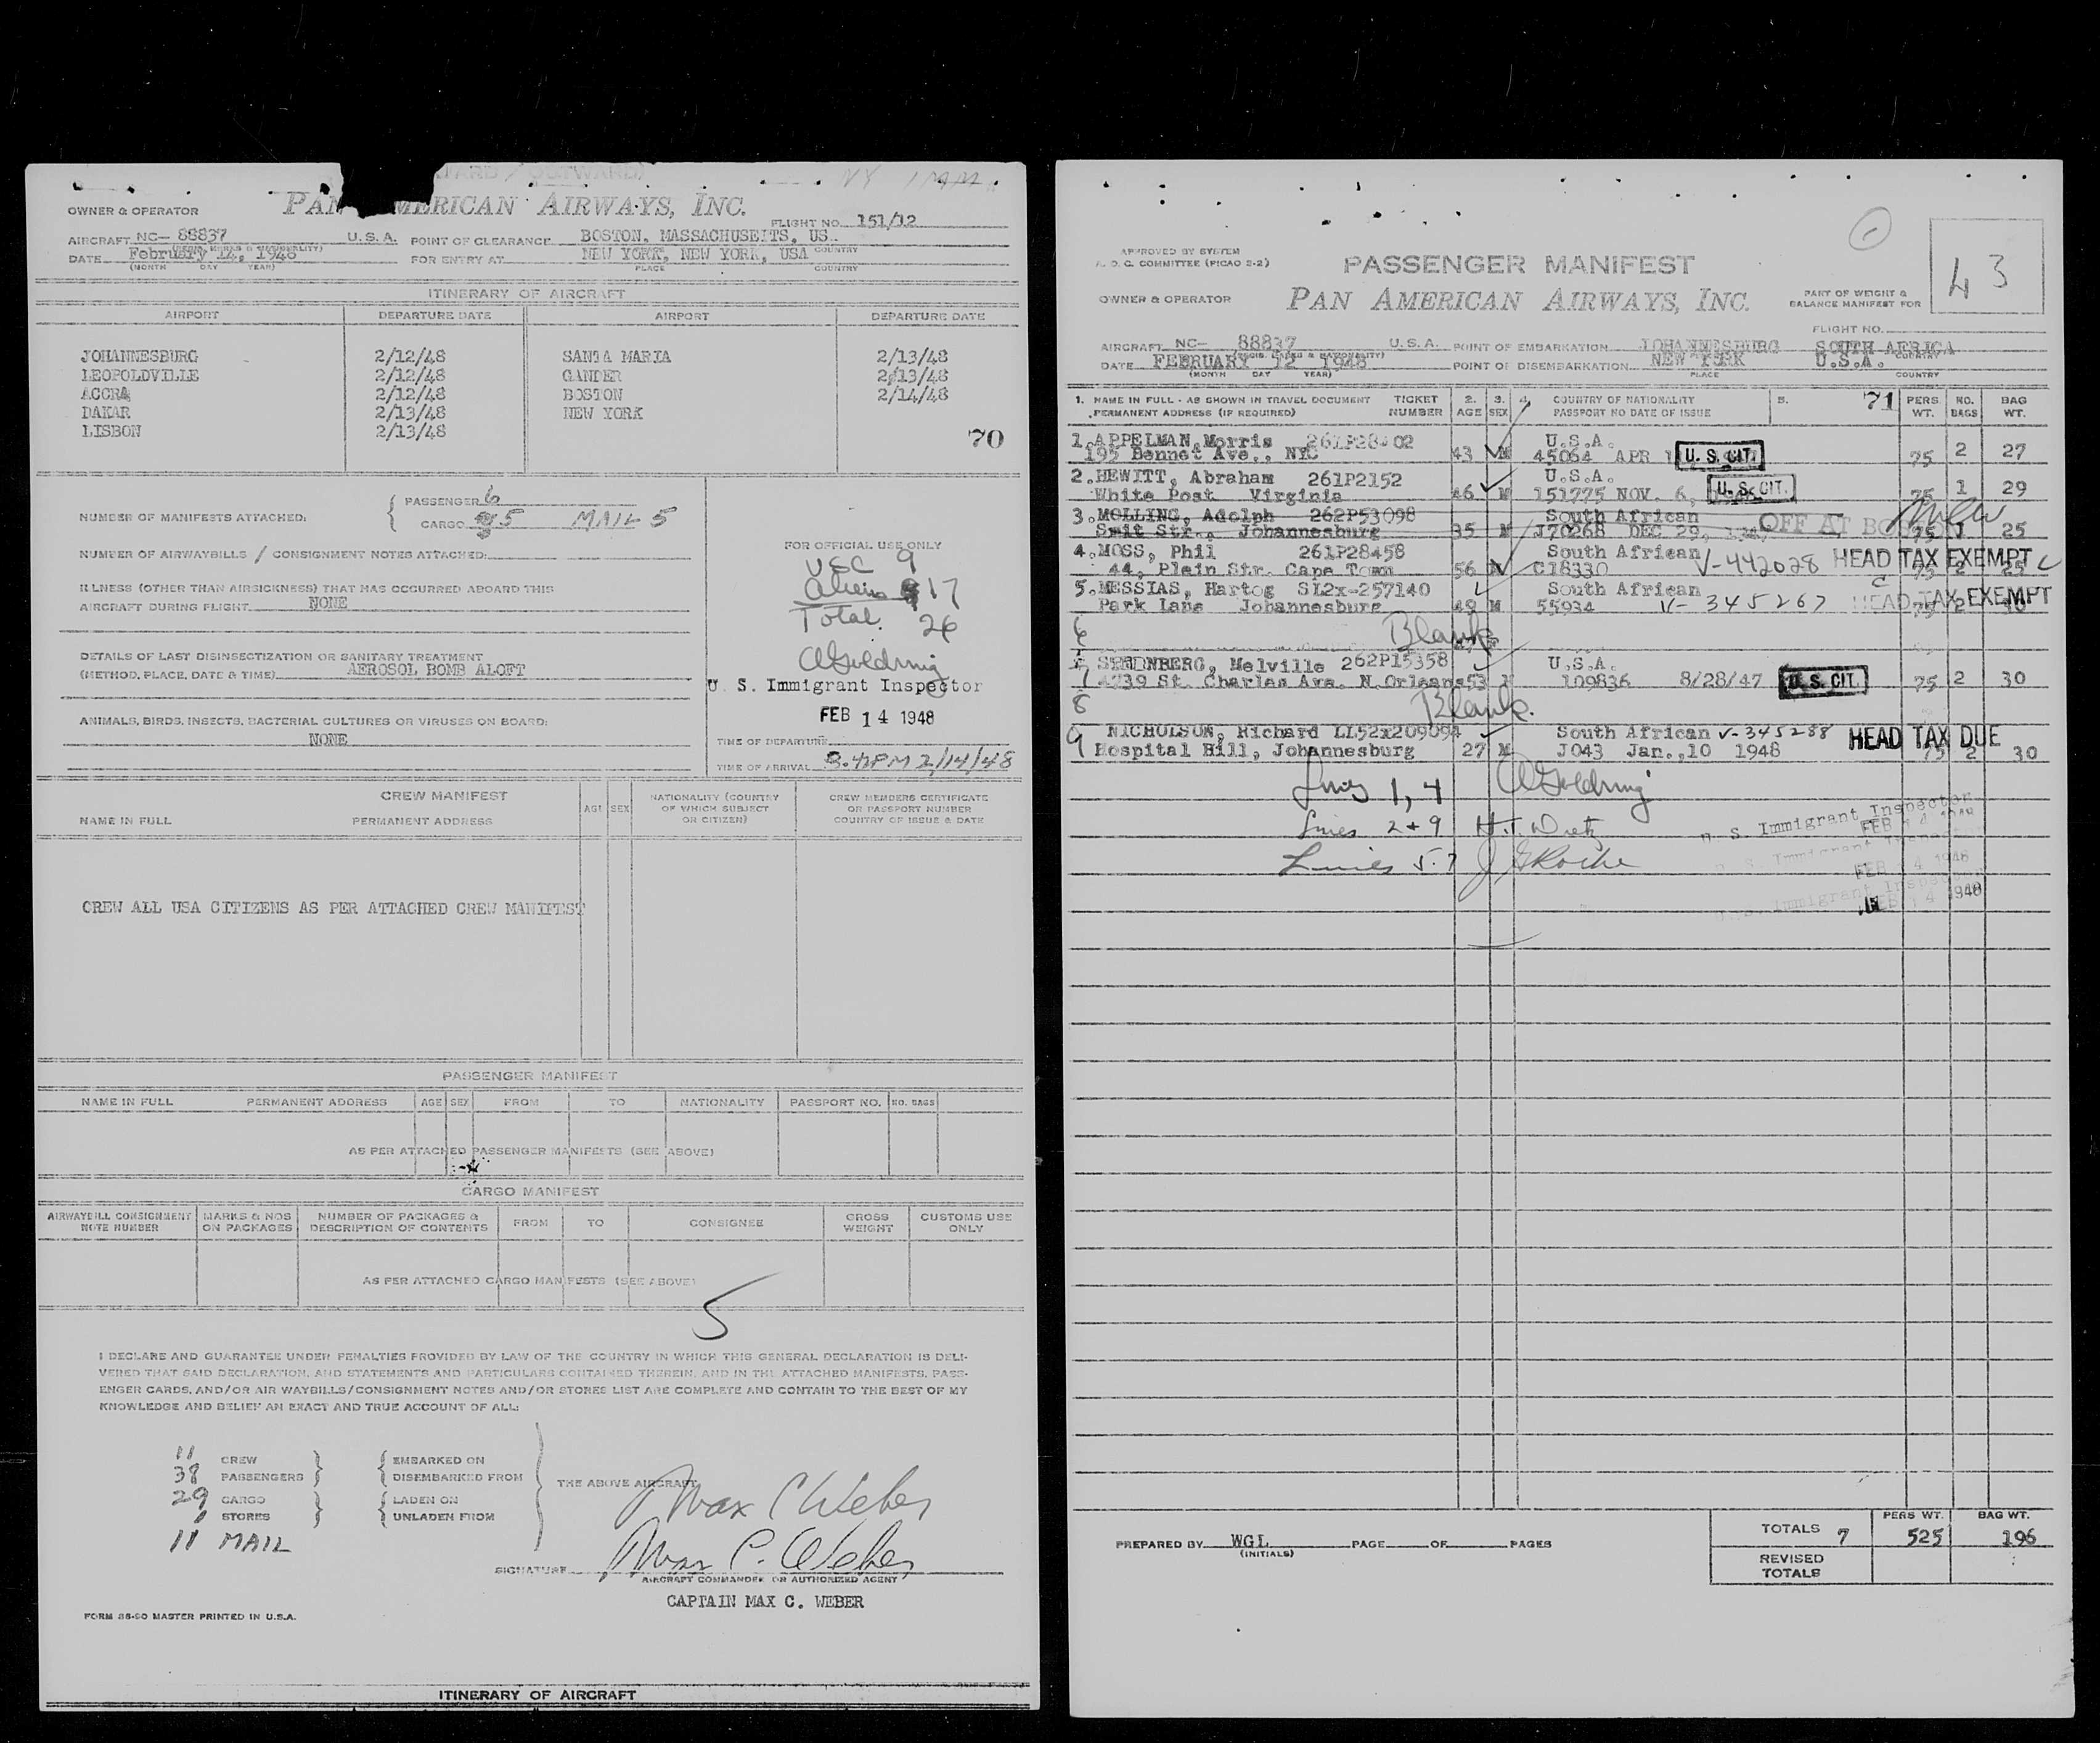 NY
OWNER & OPERATOR
PAN AMERICAN AIRWAYS, INC.
FLIGHT NO. 151/12
AIRCRAFT NC- 88837 U.S.A. POINT OF CLEARANCE BOSTON, MASSACHUSETTS, US.
DATE February 14, 1948 FOR ENTRY AT NEW YORK, NEW YORK, USA COUNTRY
(MONTH DAY YEAR) PLACE COUNTRY
ITINERARY OF AIRCRAFT
AIRPORT DEPARTURE DATE AIRPORT DEPARTURE DATE
JOHANNESBURG 2/12/48 SANTA MARIA 2/13/48
LEOPOLDVILLE 2/12/48 GANDER 2/13/48
ACCRA 2/12/48 BOSTON 2/14/48
DAKAR 2/13/48 NEW YORK
LISBON 2/13/48
70
NUMBER OF MANIFESTS ATTACHED: PASSENGER 6
CARGO 5 MAIL 5
NUMBER OF AIRWAYBILLS / CONSIGNMENT NOTES ATTACHED:
ILLNESS (OTHER THAN AIRSICKNESS) THAT HAS OCCURRED ABOARD THIS
AIRCRAFT DURING FLIGHT NONE
DETAILS OF LAST DISINSECTIZATION OR SANITARY TREATMENT
(METHOD, PLACE, DATE & TIME) AEROSOL BOMB ALOFT
ANIMALS, BIRDS, INSECTS, BACTERIAL CULTURES OR VIRUSES ON BOARD:
NONE
FOR OFFICIAL USE ONLY
USC 9
Aliens 17
Total 26
AGoldring
U. S. Immigrant Inspector
FEB 14 1948
TIME OF DEPARTURE
TIME OF ARRIVAL 8:42PM 2/14/48
CREW MANIFEST
NAME IN FULL PERMANENT ADDRESS
AGE SEX
NATIONALITY (COUNTRY
OF WHICH SUBJECT
OR CITIZEN)
CREW MEMBERS CERTIFICATE
OR PASSPORT NUMBER
COUNTRY OF ISSUE & DATE
CREW ALL USA CITIZENS AS PER ATTACHED CREW MANIFEST
PASSENGER MANIFEST
NAME IN FULL PERMANENT ADDRESS AGE SEX FROM TO NATIONALITY PASSPORT NO. NO. BAGS
AS PER ATTACHED PASSENGER MANIFESTS (SEE ABOVE)
CARGO MANIFEST
AIRWAYBILL CONSIGNMENT
NOTE NUMBER
MARKS & NOS
ON PACKAGES
NUMBER OF PACKAGES &
DESCRIPTION OF CONTENTS
FROM TO CONSIGNEE
GROSS
WEIGHT
CUSTOMS USE
ONLY
AS PER ATTACHED CARGO MANIFESTS (SEE ABOVE)
5
I DECLARE AND GUARANTEE UNDER PENALTIES PROVIDED BY LAW OF THE COUNTRY IN WHICH THIS GENERAL DECLARATION IS DELI-
VERED THAT SAID DECLARATION, AND STATEMENTS AND PARTICULARS CONTAINED THEREIN, AND IN THE ATTACHED MANIFESTS, PASS-
ENGER CARDS, AND/OR AIR WAYBILLS/CONSIGNMENT NOTES AND/OR STORES LIST ARE COMPLETE AND CONTAIN TO THE BEST OF MY
KNOWLEDGE AND BELIEF AN EXACT AND TRUE ACCOUNT OF ALL:
11 CREW EMBARKED ON
38 PASSENGERS DISEMBARKED FROM
THE ABOVE AIRCRAFT
29 CARGO LADEN ON
STORES UNLADEN FROM
11 MAIL
Max C Weber
SIGNATURE Max C. Weber
AIRCRAFT COMMANDER OR AUTHORIZED AGENT
CAPTAIN MAX C. WEBER
FORM 88-90 MASTER PRINTED IN U.S.A.
ITINERARY OF AIRCRAFT
43
APPROVED BY SYSTEM
COMMITTEE (PICAO S-2)
PASSENGER MANIFEST
OWNER & OPERATOR PAN AMERICAN AIRWAYS, INC.
PART OF WEIGHT &
BALANCE MANIFEST FOR
FLIGHT NO.
AIRCRAFT NC- 88837 U.S.A. POINT OF EMBARKATION JOHANNESBURG SOUTH AFRICA
DATE FEBRUARY 12 1948 POINT OF DISEMBARKATION NEW YORK U.S.A.
(MONTH DAY YEAR) PLACE COUNTRY
1. NAME IN FULL - AS SHOWN IN TRAVEL DOCUMENT TICKET 2. 3. 4. COUNTRY OF NATIONALITY 5. 71 PERS NO. BAG
PERMANENT ADDRESS (IF REQUIRED) NUMBER AGE SEX PASSPORT NO DATE OF ISSUE WT. BAGS WT.
1.APPELMAN,Morris U.S.A.
195 Bennet Ave., NYC 43 M 45064 APR U. S. CIT. 75 2 27
2.HEWITT, Abraham 261P2152 U.S.A.
White Post Virginia 46 M 151775 NOV. 6, U. S. CIT. 75 1 29
3.MOLLING, Adolph 262P53098 South African OFF AT BOSTON
Smit Str., Johannesburg 35 M J70268 DEC 29, 75 1 25
4.MOSS, Phil 261P28458 South African V-442028 HEAD TAX EXEMPT
44, Plein Str. Cape Town 56 M C18330 75 2 25
5.MESSIAS, Hartog SL2x-257140 South African
Park Lane Johannesburg 48 M 55934 V-345267 HEAD TAX EXEMPT
6 Blank
7 STERNBERG, Melville 262P15358 U.S.A.
4739 St. Charles Ave. N.Orleans 53 M 109836 8/28/47 U. S. CIT. 75 2 30
8 Blank.
9 NICHOLSON, Richard LL52x209094 South African V-345288 HEAD TAX DUE
Hospital Hill, Johannesburg 27 M J043 Jan.,10 1948 75 2 30
Lines 1, 4 AGoldring
U. S. Immigrant Inspector
FEB 14 1948
Lines 2+9 H.T. Dietz
U. S. Immigrant Inspector
FEB 14 1948
Lines 5-7 J G Roche
U. S. Immigrant Inspector
FEB 14 1948
PREPARED BY WGL PAGE OF PAGES
(INITIALS)
PERS WT. BAG WT.
TOTALS 7 525 196
REVISED
TOTALS